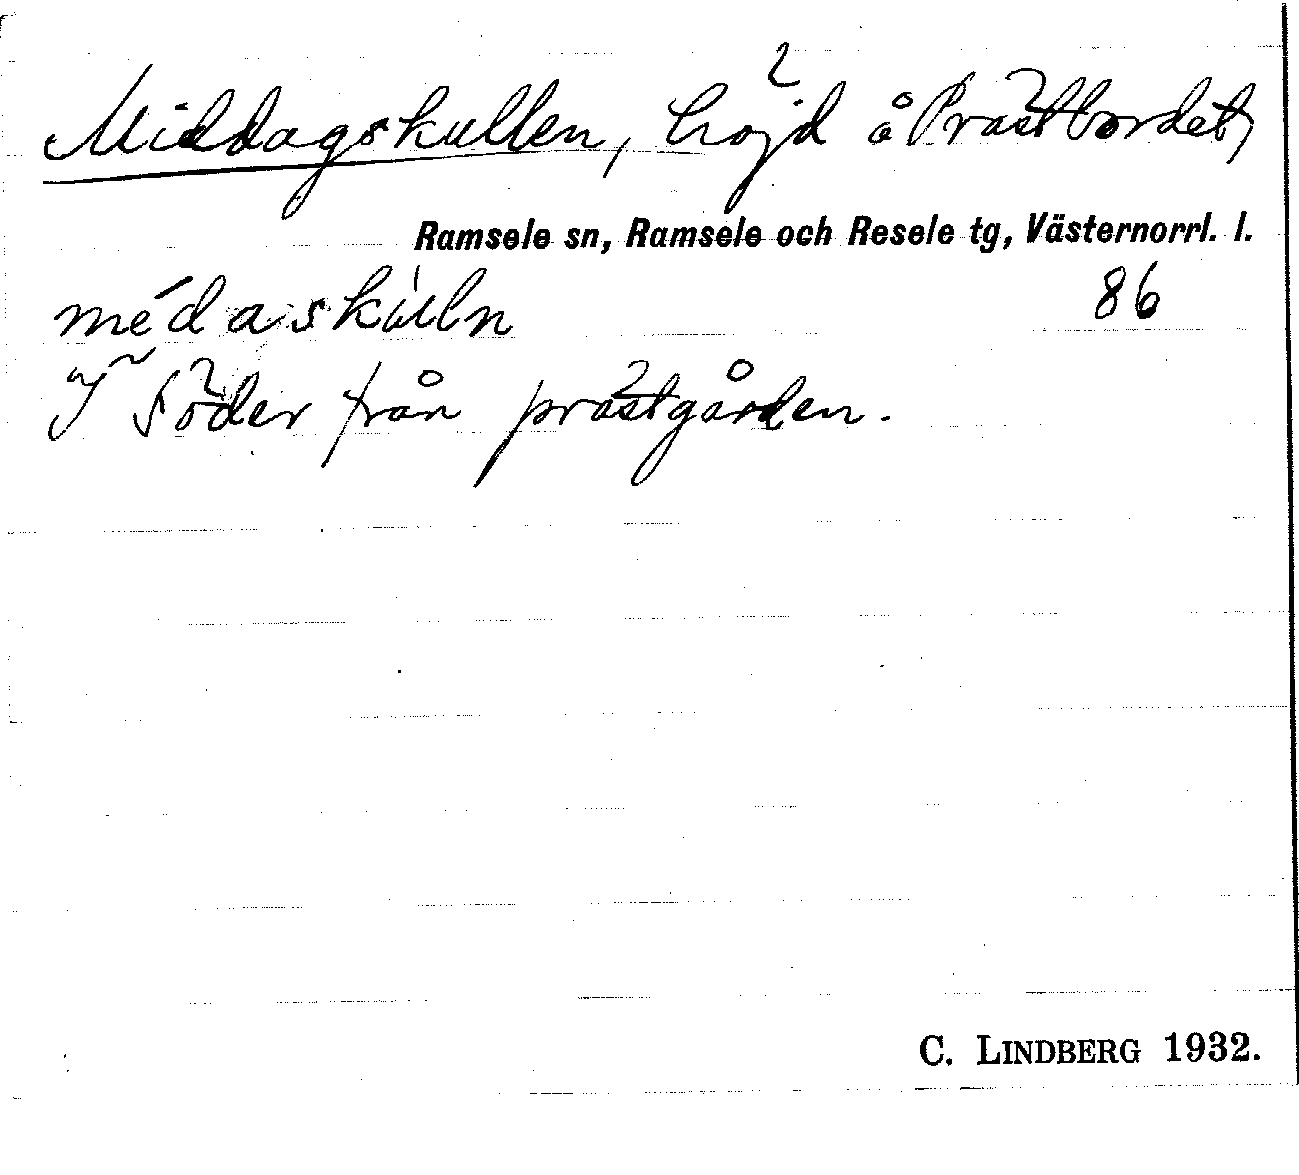 Middagskullen, höjd å Prästbordet,
Ramsele sn, Ramsele och Resele tg, Västernorrl. l.
médaskùlln 86
I söder från prästgården.
C. LINDBERG 1932.